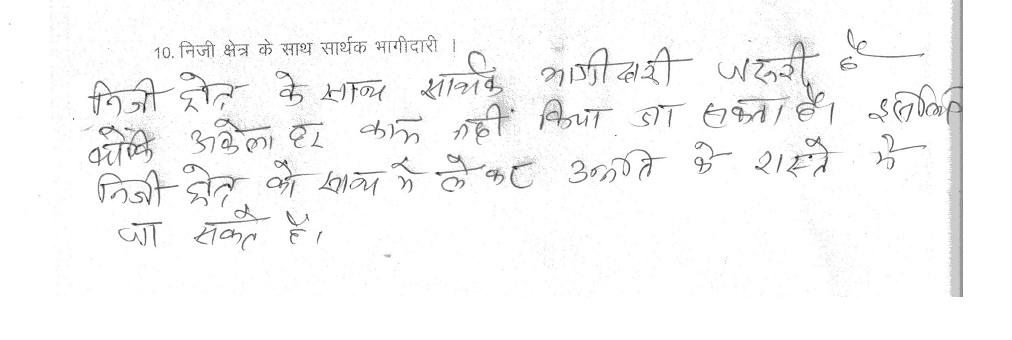 10. निजी क्षेत्र के साथ सार्थक भागीदारी ।
निजी क्षेत्र के साथ सार्थक भागीदारी जरूरी है
क्योंकि अकेला हर काम नहीं किया जा सकता है। इसलिए
निजी क्षेत्र को साथ में लेकर उन्नति के रास्ते में
जा सकते हैं।